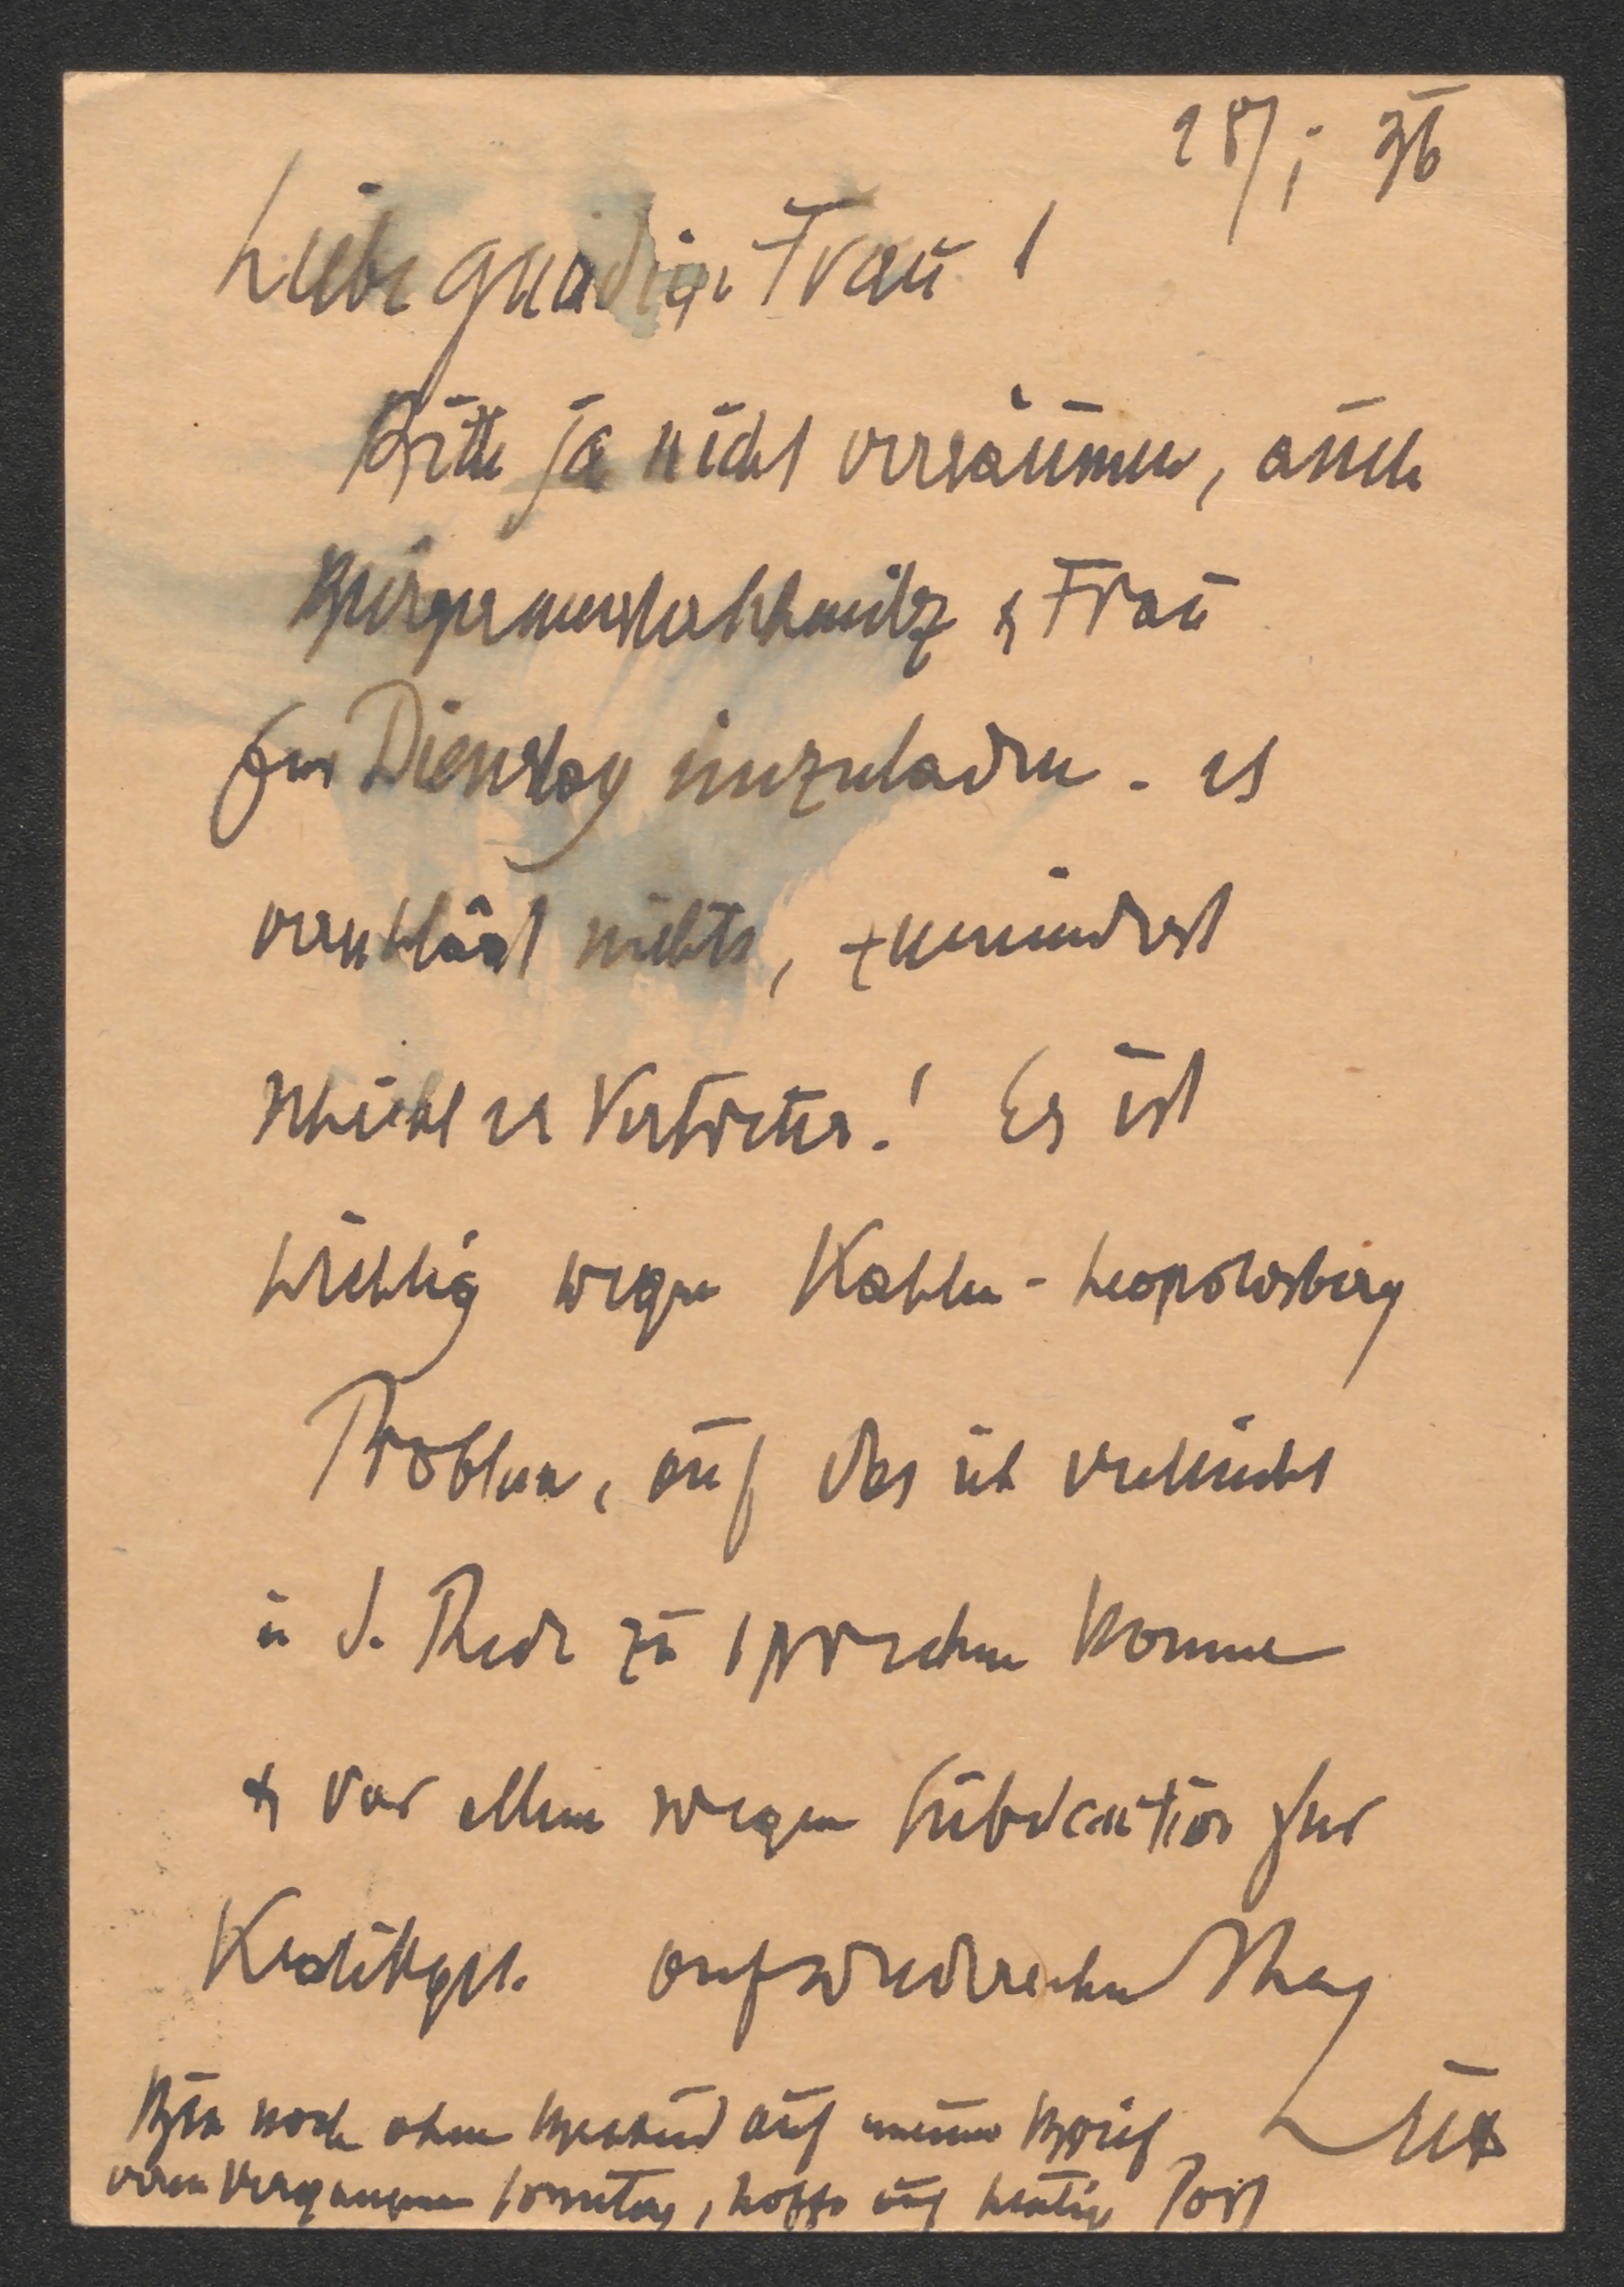 28/I 36
Liebe gnädige Frau!
Bitte ja nicht versäumen, auch
Bürgermeister Schmitz & Frau
für Dienstag einzuladen. es
verschlägt nichts, zumindest
schickt er Vertreter! Es ist
wichtig wegen Kahlen-Leopoldsberg
Problem, auf das ich vielleicht
in d. Rede zu sprechen komme
& vor allem wegen Subvention für
Kreditgen. auf Wiedersehen
Bin noch ohne Bescheid auf meinen Brief
vom vergangenen Sonntag, hoffe auf heutige Post